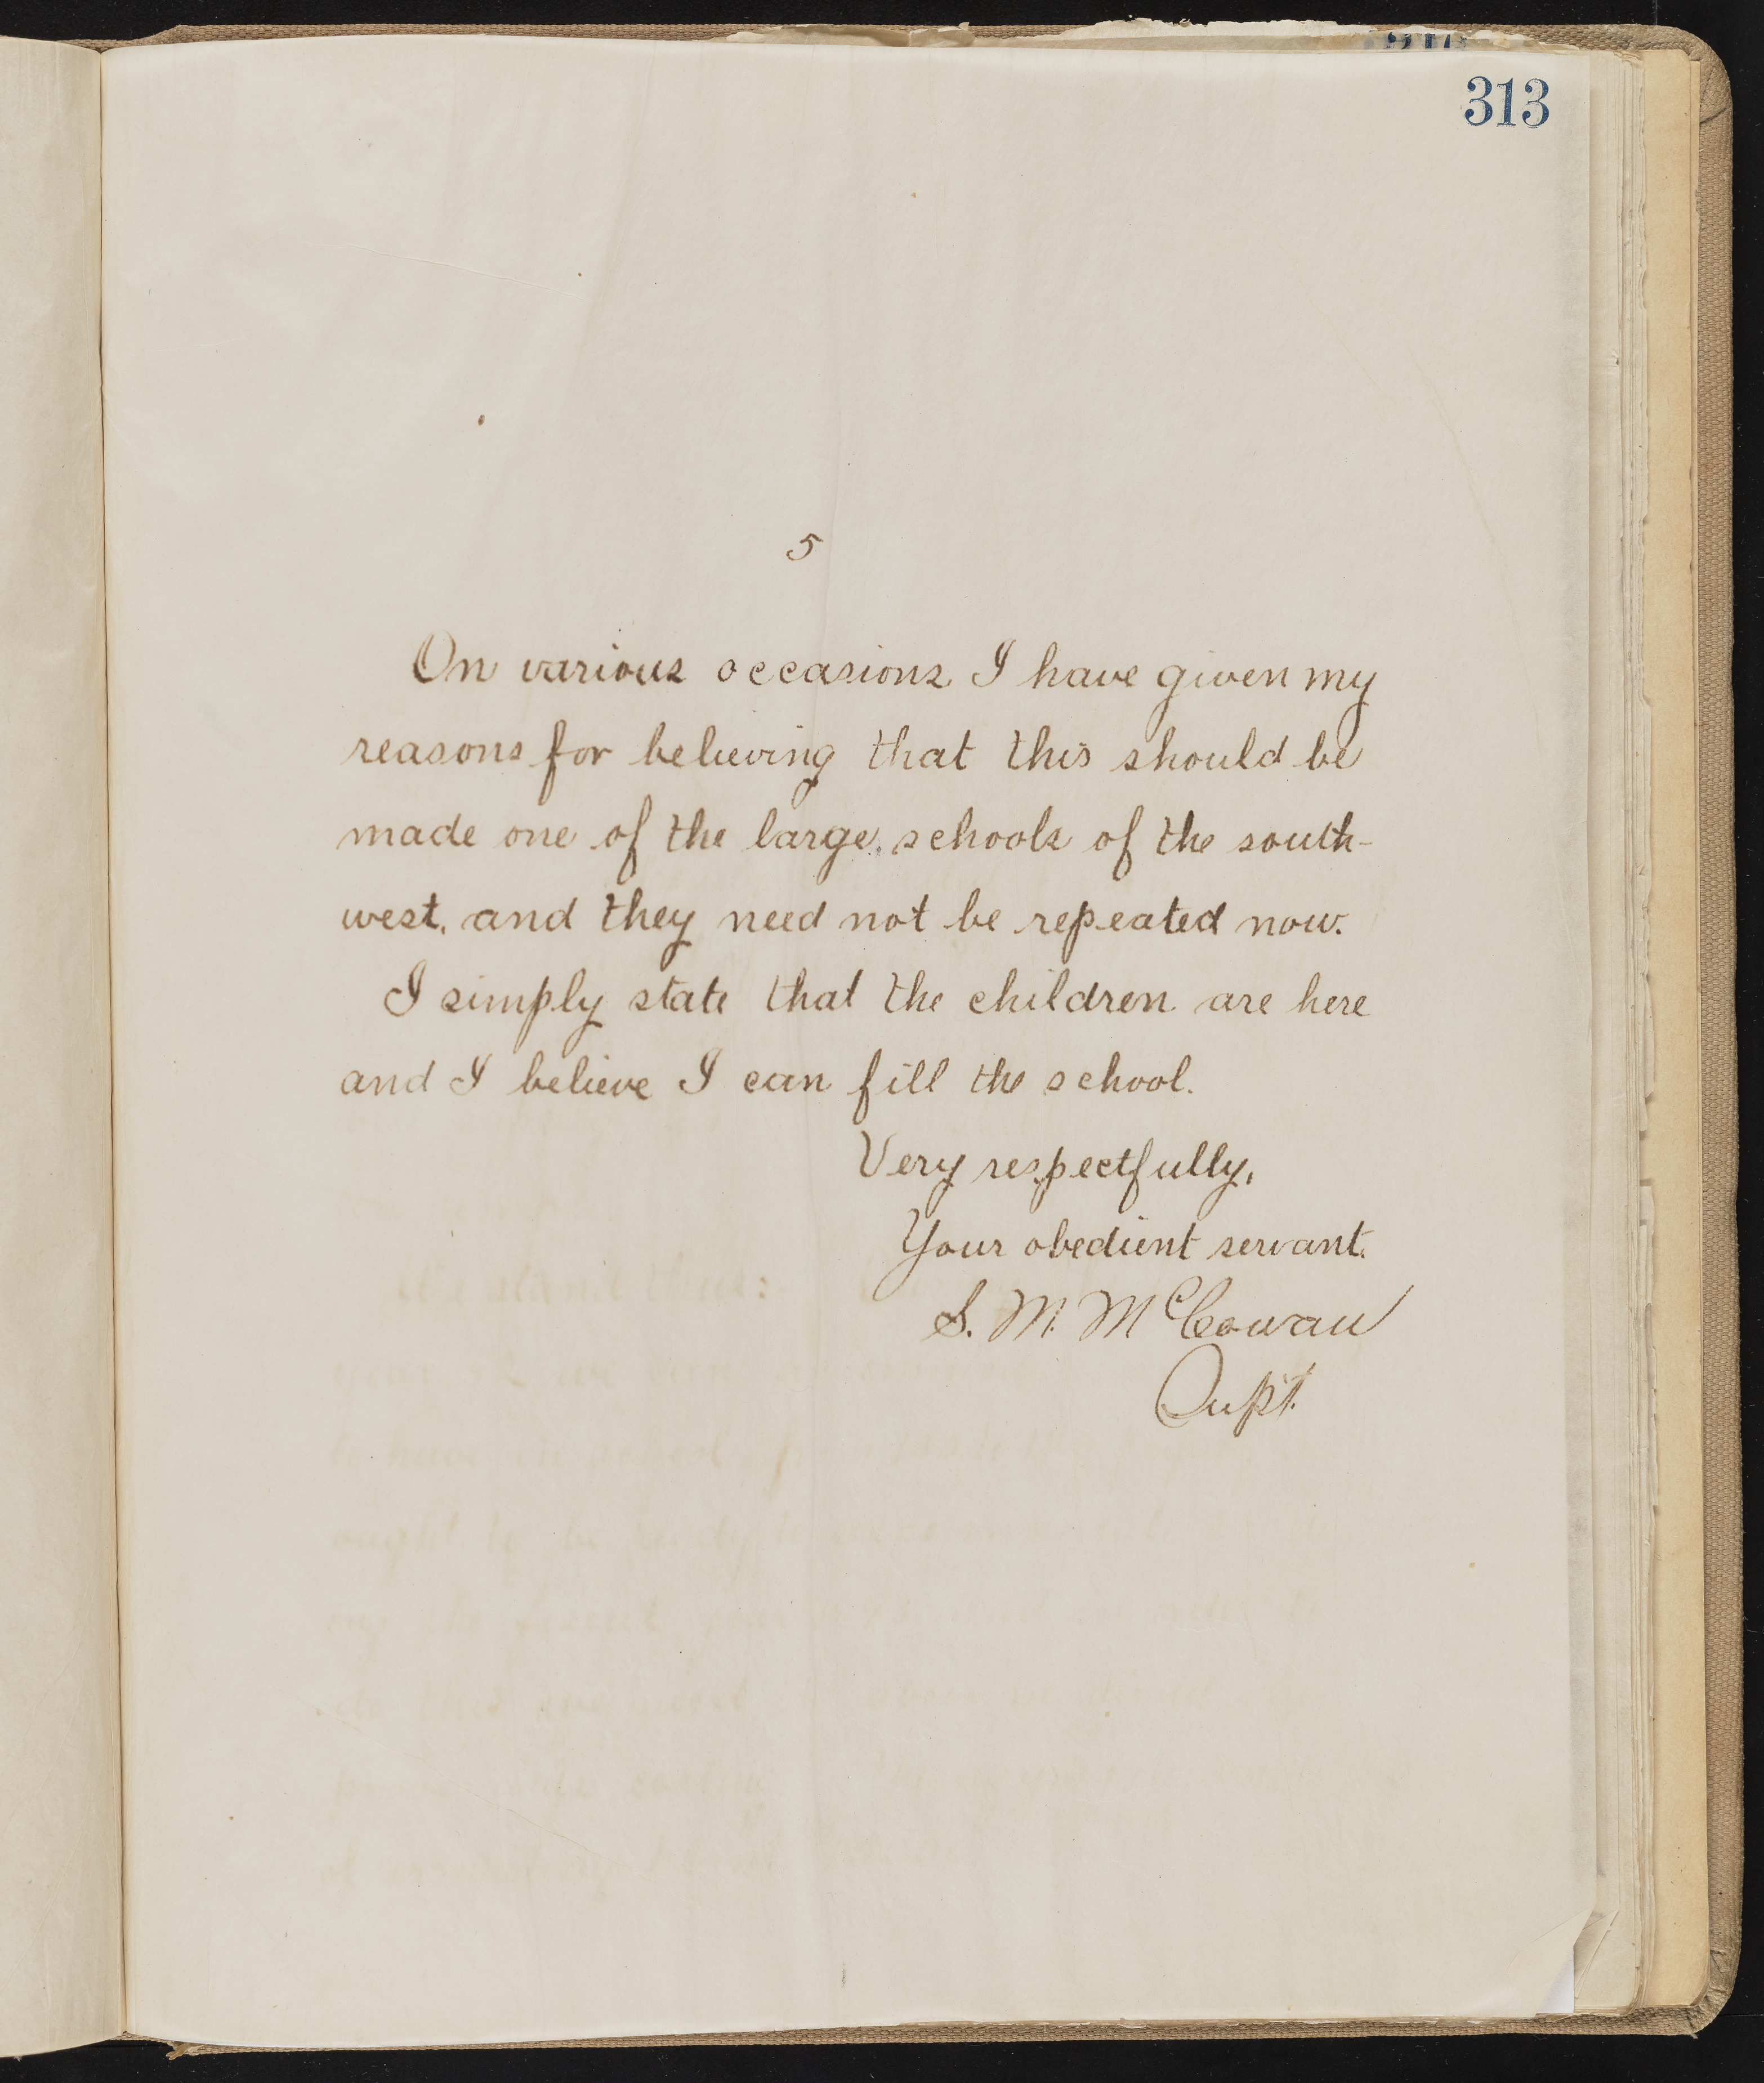 313
5
On various occasions I have given my
reasons for believing that this should be
made one of the large schools of the south-
west, and they need not be repeated now.
I simply state that the children are here
and I believe I can fill the school.
Very respectfully,
Your obedient servant.
S. M. McCowan
Supt.